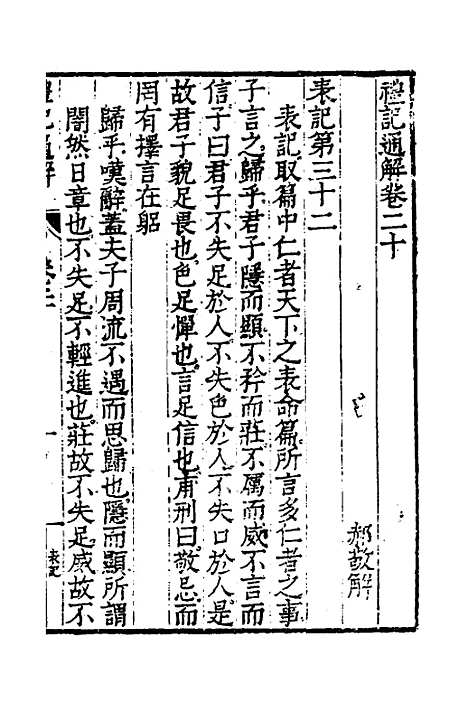 禮記通解卷二十
郝敬解
表記第三十二
表記取篇中仁者天下之表命篇所言多仁者之事
子言之歸乎君子隱而顯不矜而莊不厲而威不言而
信子曰君子不失足於人不失色於人不失口於人是
故君子貌足畏也色足憚也言足信也甫刑曰敬忌而
罔有擇言在躬
歸乎嘆辭蓋夫子周流不遇而思歸也隱而顯所謂
闇然日章也不失足不輕進也莊故不失足威故不
禮記通解
卷二十
一
表記